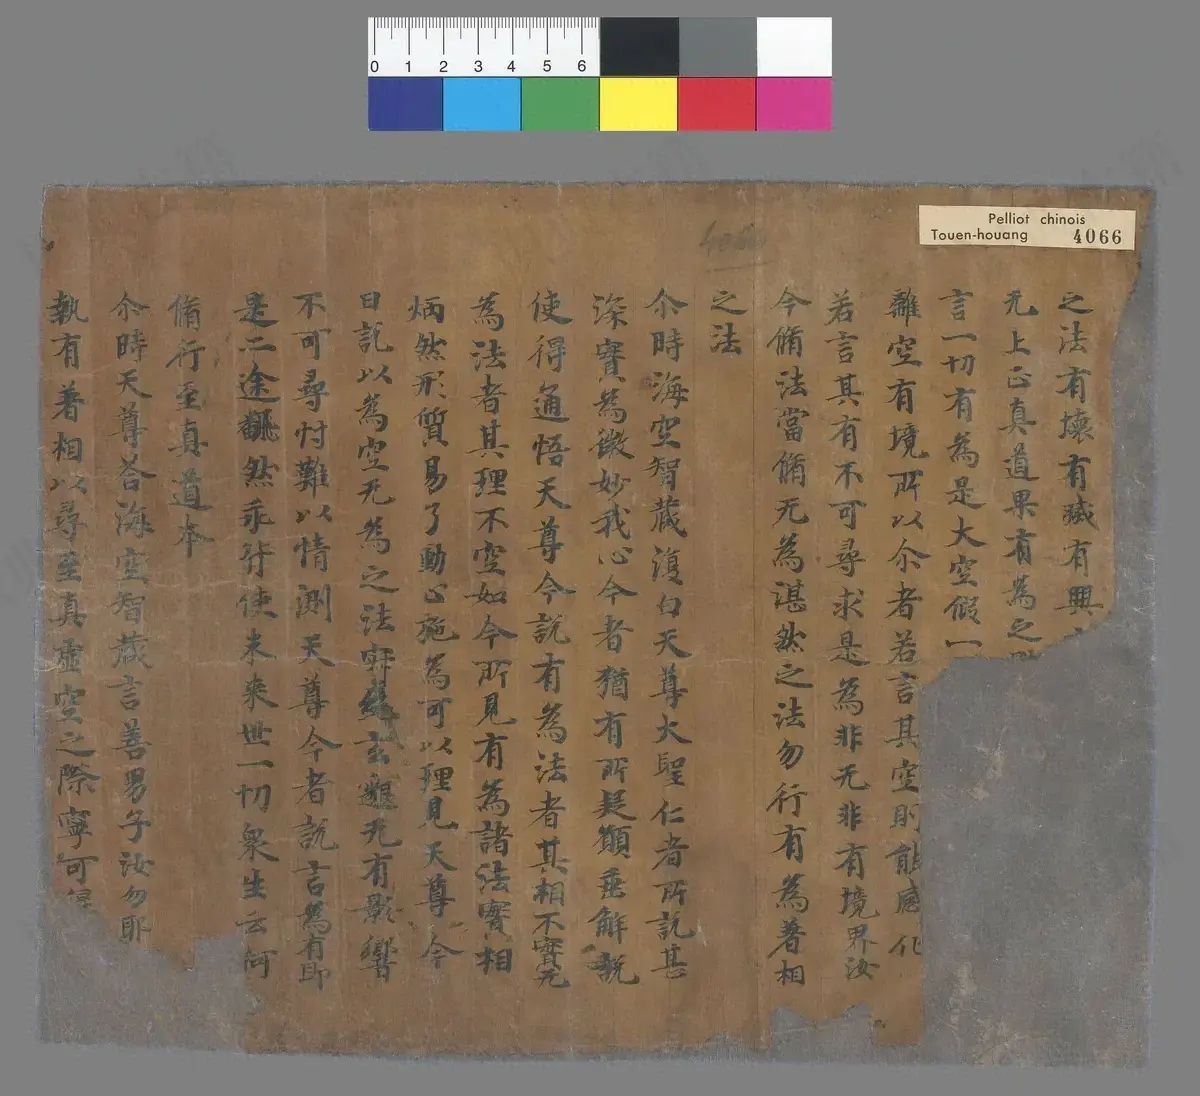 0 1 2 3 4 5 6
Pelliot chinois
Touen-houang 4066
4066
之法有壞有滅有興
无上正真道果有為之
言一切有為是大空假一
離空有境所以尒者若言其空則能感化
若言其有不可尋求是為非无非有境界汝
今脩法當脩无為湛然之法勿行有為著相
之法
尒時海空智藏復白天尊大聖仁者所說甚
深實為微妙我心今者猶有所疑願垂解說
使得通悟天尊今說有為法者其相不實无
為法者其理不空如今所見有為諸法實相
炳然形質易了動心施為可以理見天尊今
日說以為空无為之法玄無有影響
不可尋忖難以情測天尊今者說言為有即
是二途然乖行使未來世一切衆生云何
脩行至真道本
尒時天尊荅海空智藏言善男子汝勿耶
執有著相以尋至真虛空之際寧可